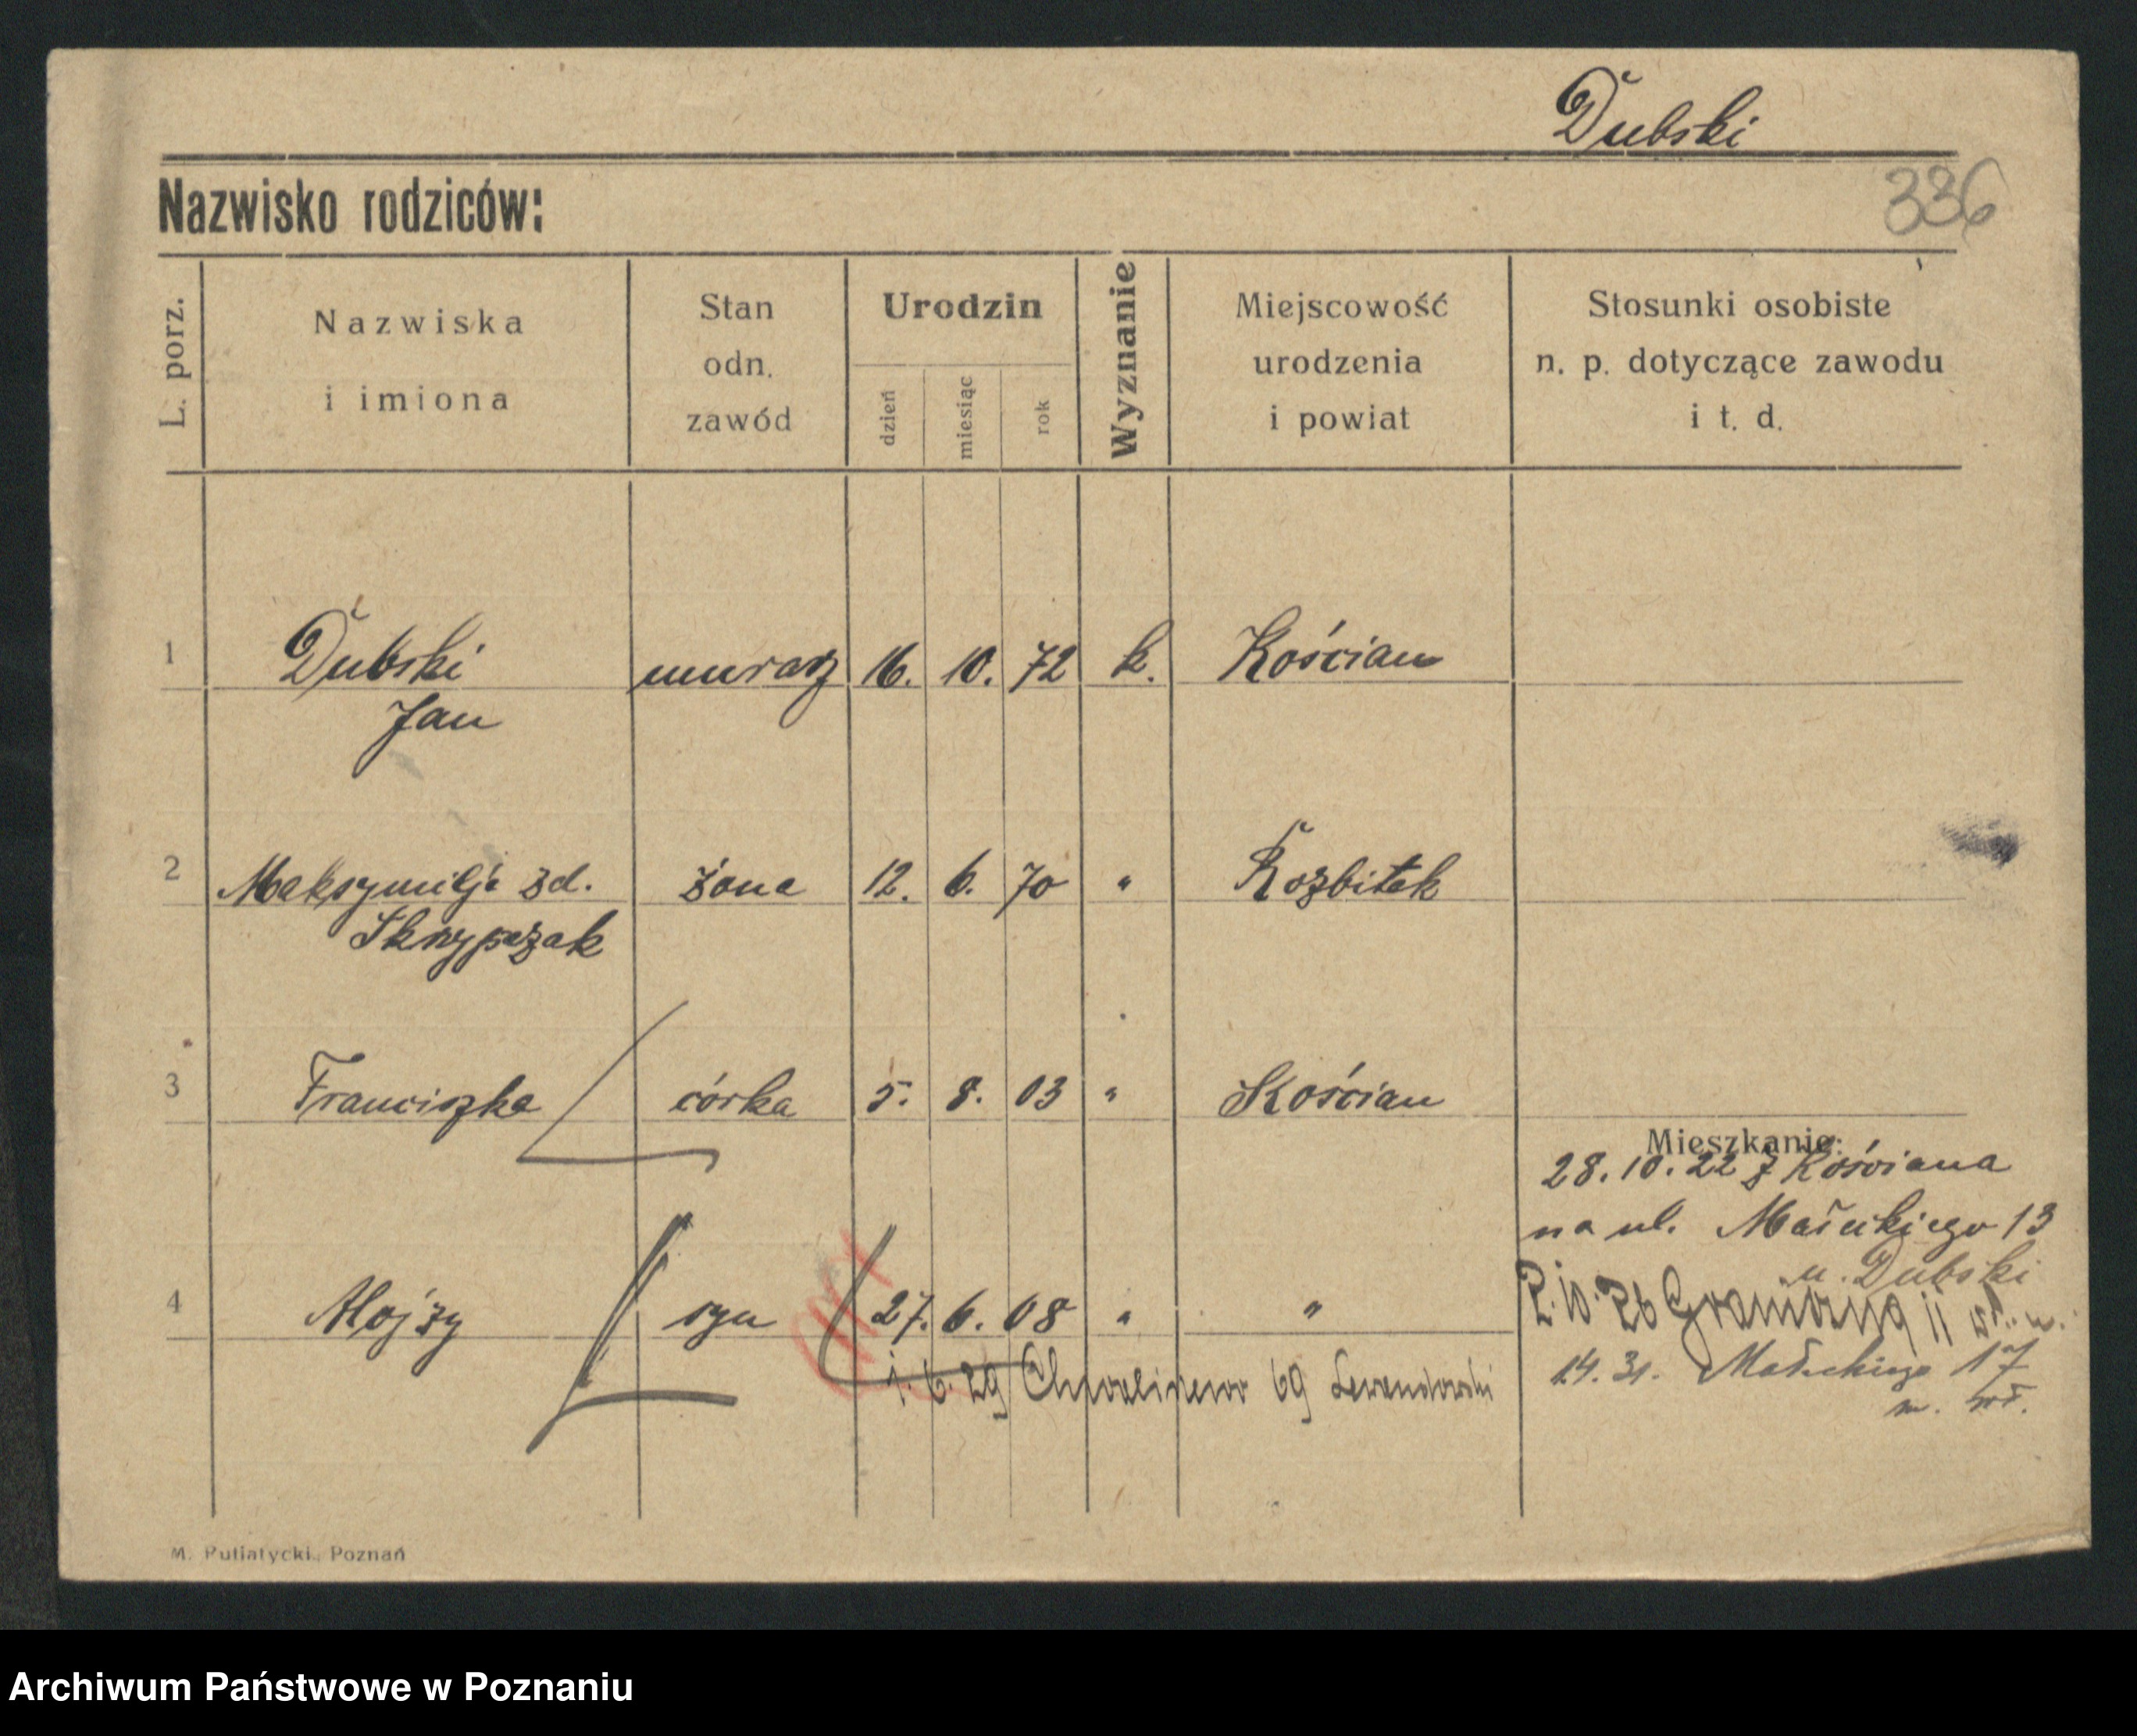 Dubski
336
Nazwisko rodziców:
L. porz.
Nazwiska
i imiona
Stan
odn.
zawód
Urodzin
dzień
miesiąc
rok
Wyznanie
Miejscowość
urodzenia
i powiat
Stosunki osobiste
n. p. dotyczące zawodu
i t. d.
1 Dubski murarz 16. 10. 72 k. Kościan
Jan
2 Maksymilja zd. żona 12. 6. 70 " Rozbitek
Skrzypczak
3 Franciszka córka 5. 8. 03 " Kościan
Mieszkanie:
28. 10. 22 z Kościana
na ul. Małeckiego 13
u. Dubski
4 Alojzy syn 27. 6. 08 " "
2. 10. 26 Graniczna 11
1. 6. 29 Chwaliszewo 69 Lewandowski
1.4. 31. Małeckiego 17
M. Putiatycki, Poznań
Archiwum Państwowe w Poznaniu